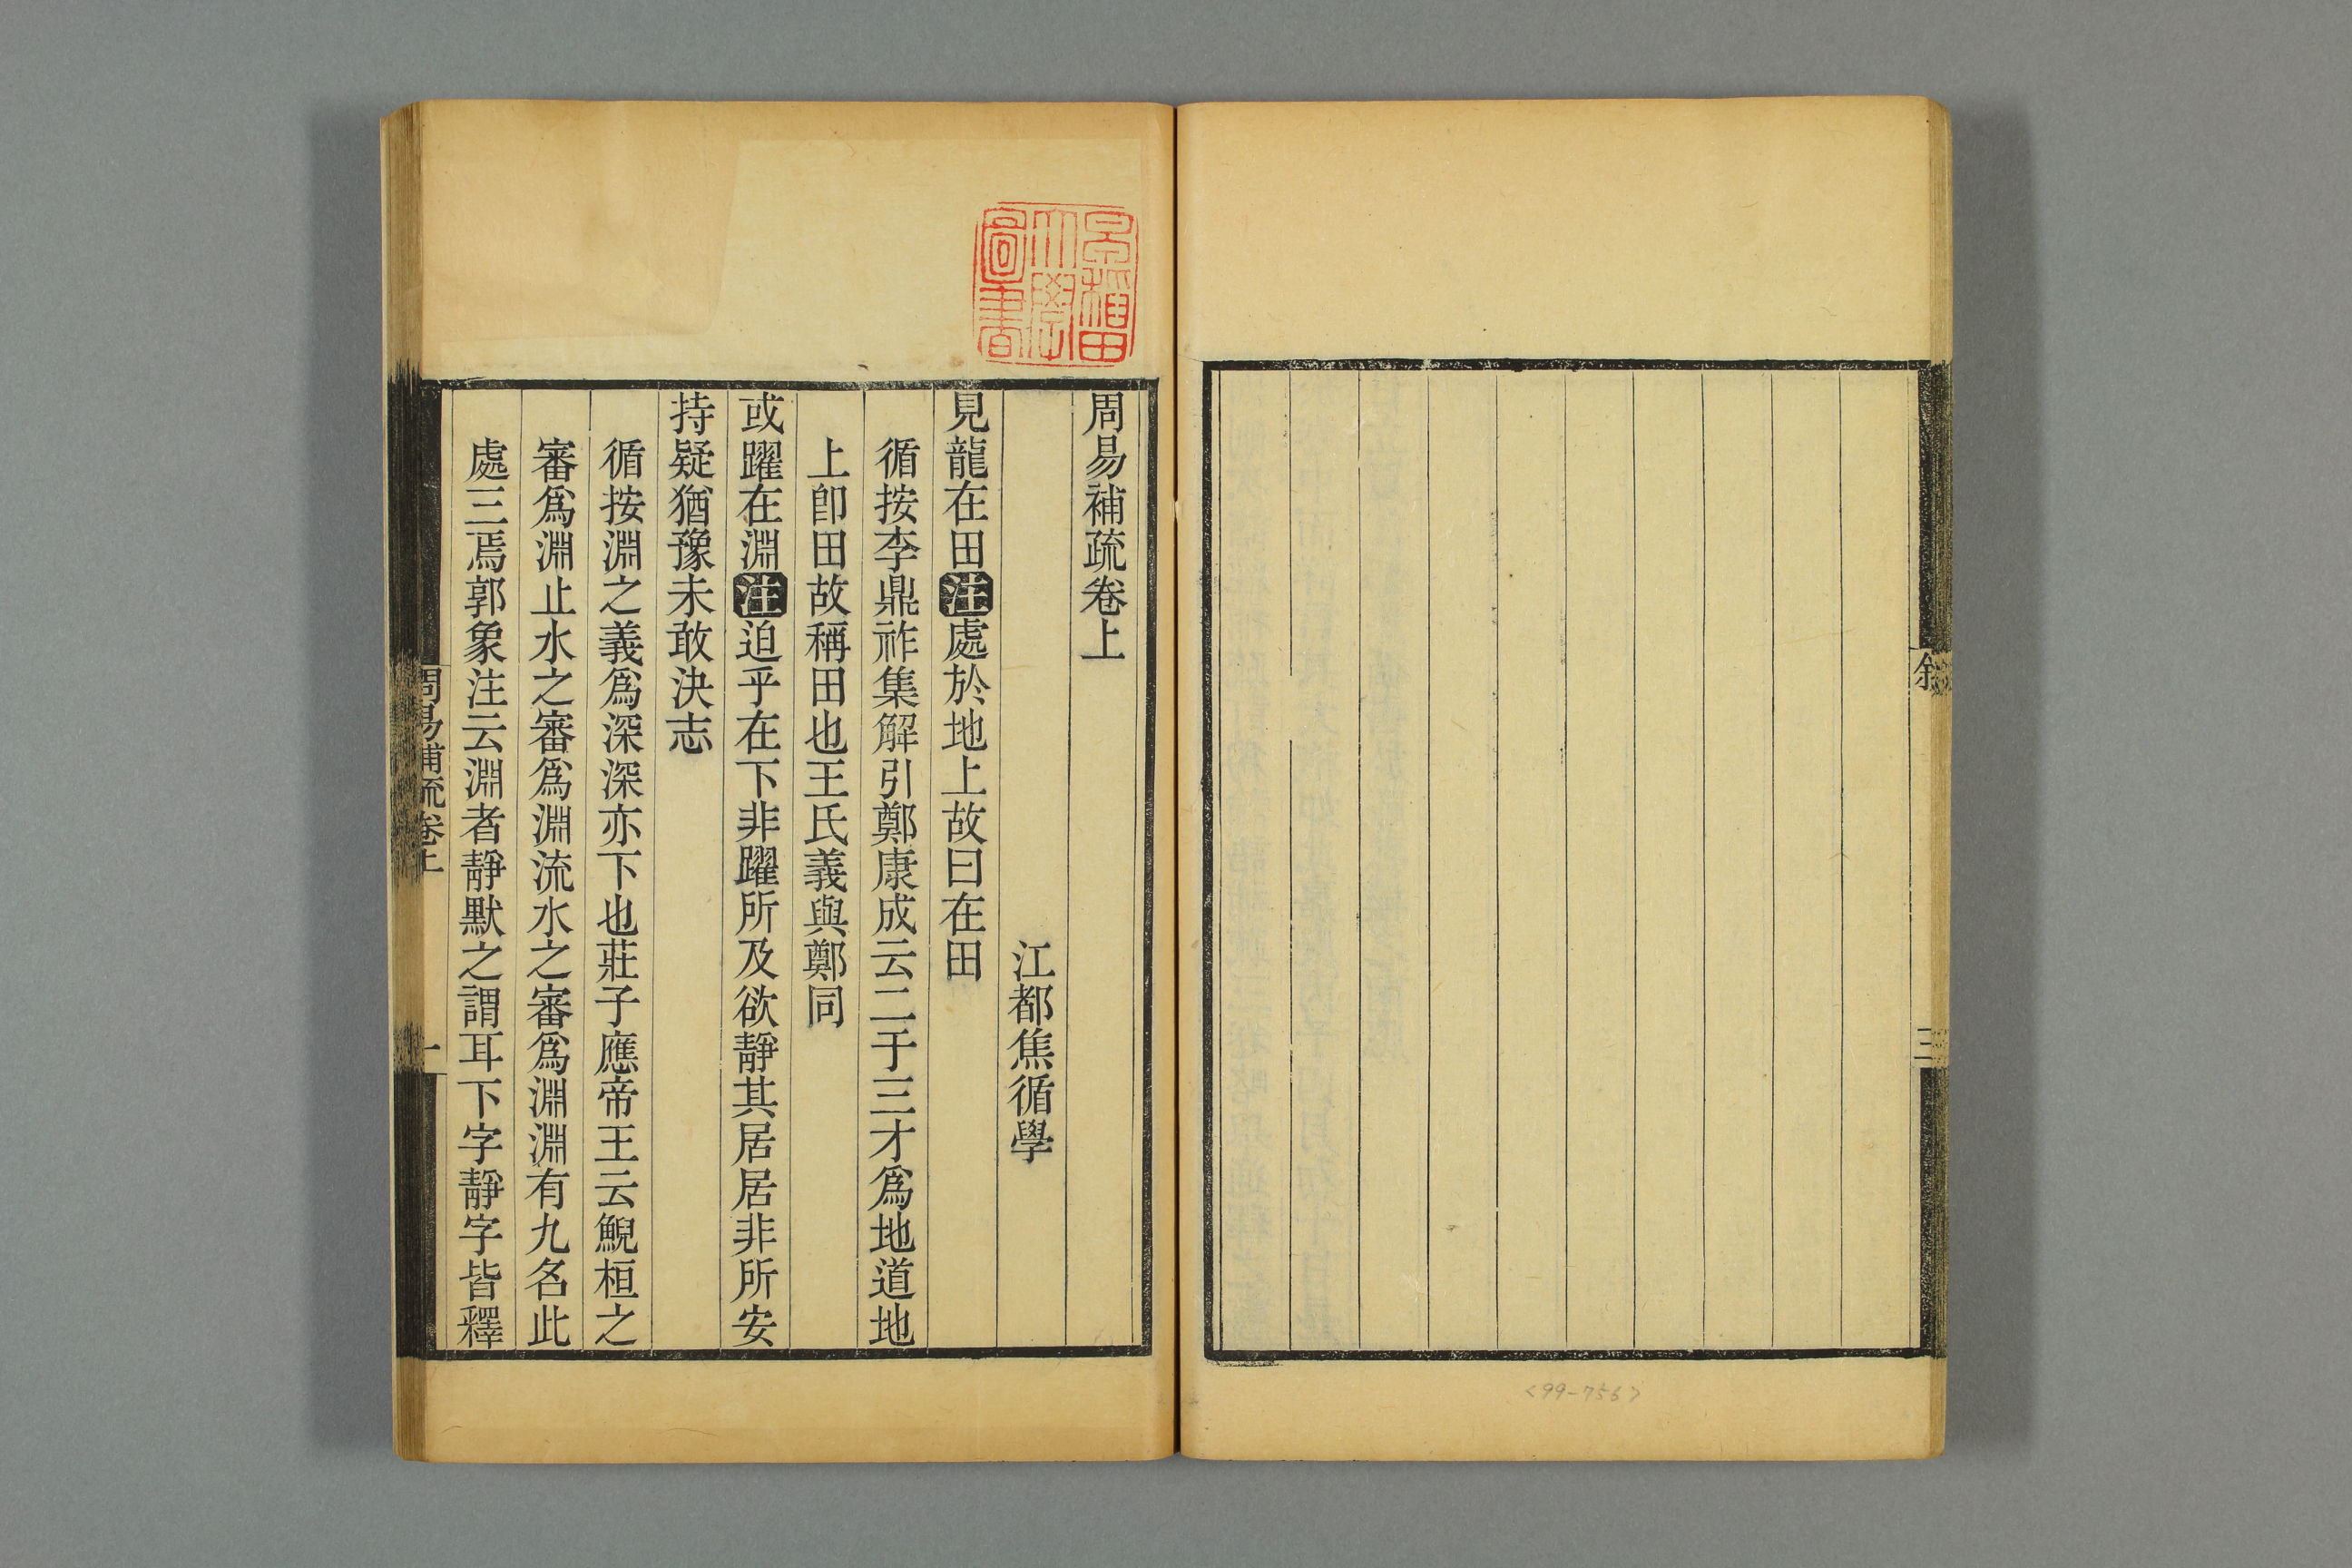 叙
三
<99-756>
早稲田大學圖書
周易補疏卷上
江都焦循學
見龍在田注處於地上故曰在田
循按李鼎祚集解引鄭康成云二于三才爲地道地
上卽田故稱田也王氏義與鄭同
或躍在淵注迫乎在下非躍所及欲靜其居居非所安
持疑猶豫未敢決志
循按淵之義爲深深亦下也莊子應帝王云鯢桓之
審爲淵止水之審爲淵流水之審爲淵淵有九名此
處三焉郭象注云淵者靜默之謂耳下字靜字皆釋
周易補疏卷上
一